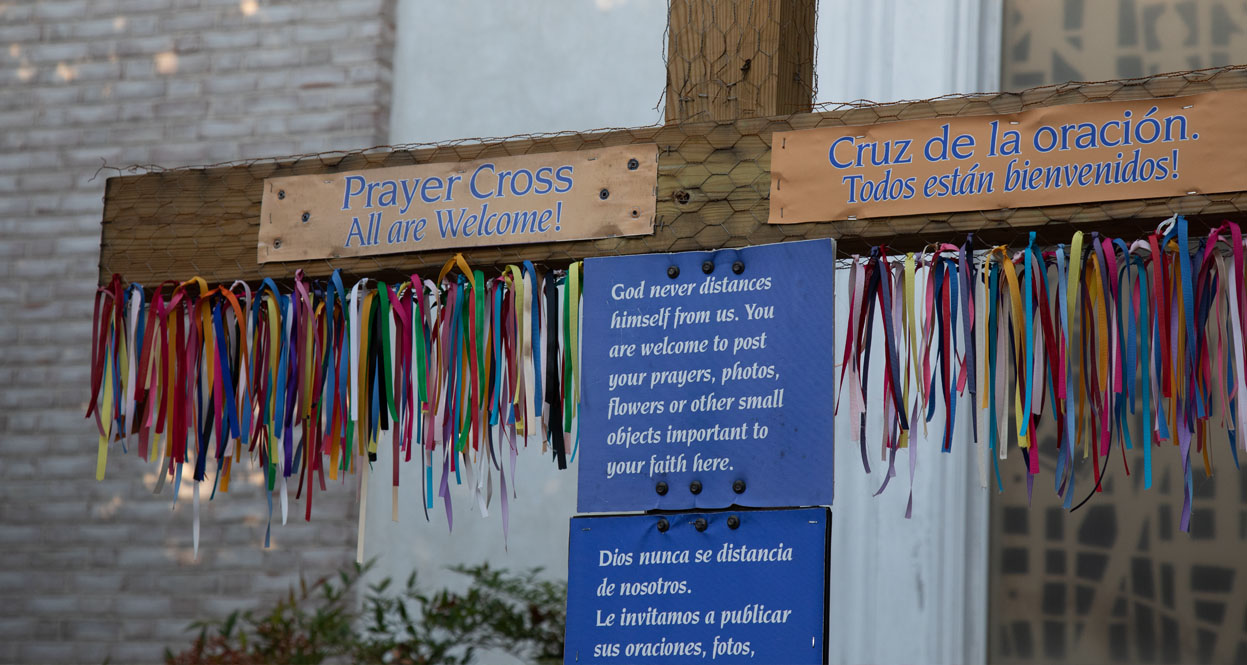 Prayer Cross
All are Welcome!
Cruz de la oración.
Todos están bienvenidos!
God never distances
himself from us. You
are welcome to post
your prayers, photos,
flowers or other small
objects important to
your faith here.
Dios nunca se distancia
de nosotros.
Le invitamos a publicar
sus oraciones, fotos,